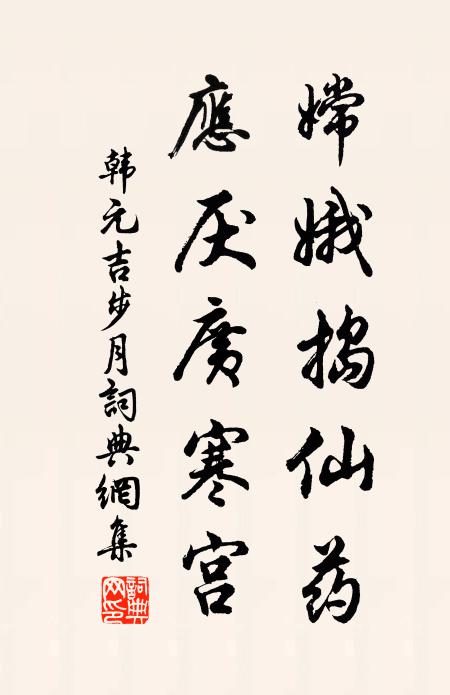 嫦娥搗仙药
應厌廣寒宫
韩元吉步月詞典網集
詞典網印